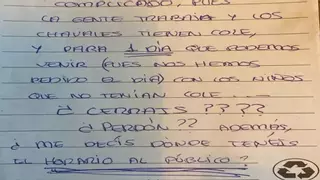 COMPLICADO, PUES
LA GENTE TRABAJA Y LOS
CHAVALES TIENEN COLE,
Y PARA 1 DÍA QUE PODEMOS
VENIR (PUES NOS HEMOS
PEDIDO EL DÍA) CON LOS NIÑOS
QUE NO TENÍAN COLE ....
¿¿ CERRAIS ????
¿ PERDÓN ?? ADEMÁS,
¿ ME DECÍS DÓNDE TENÉIS
EL HORARIO AL PÚBLICO ?